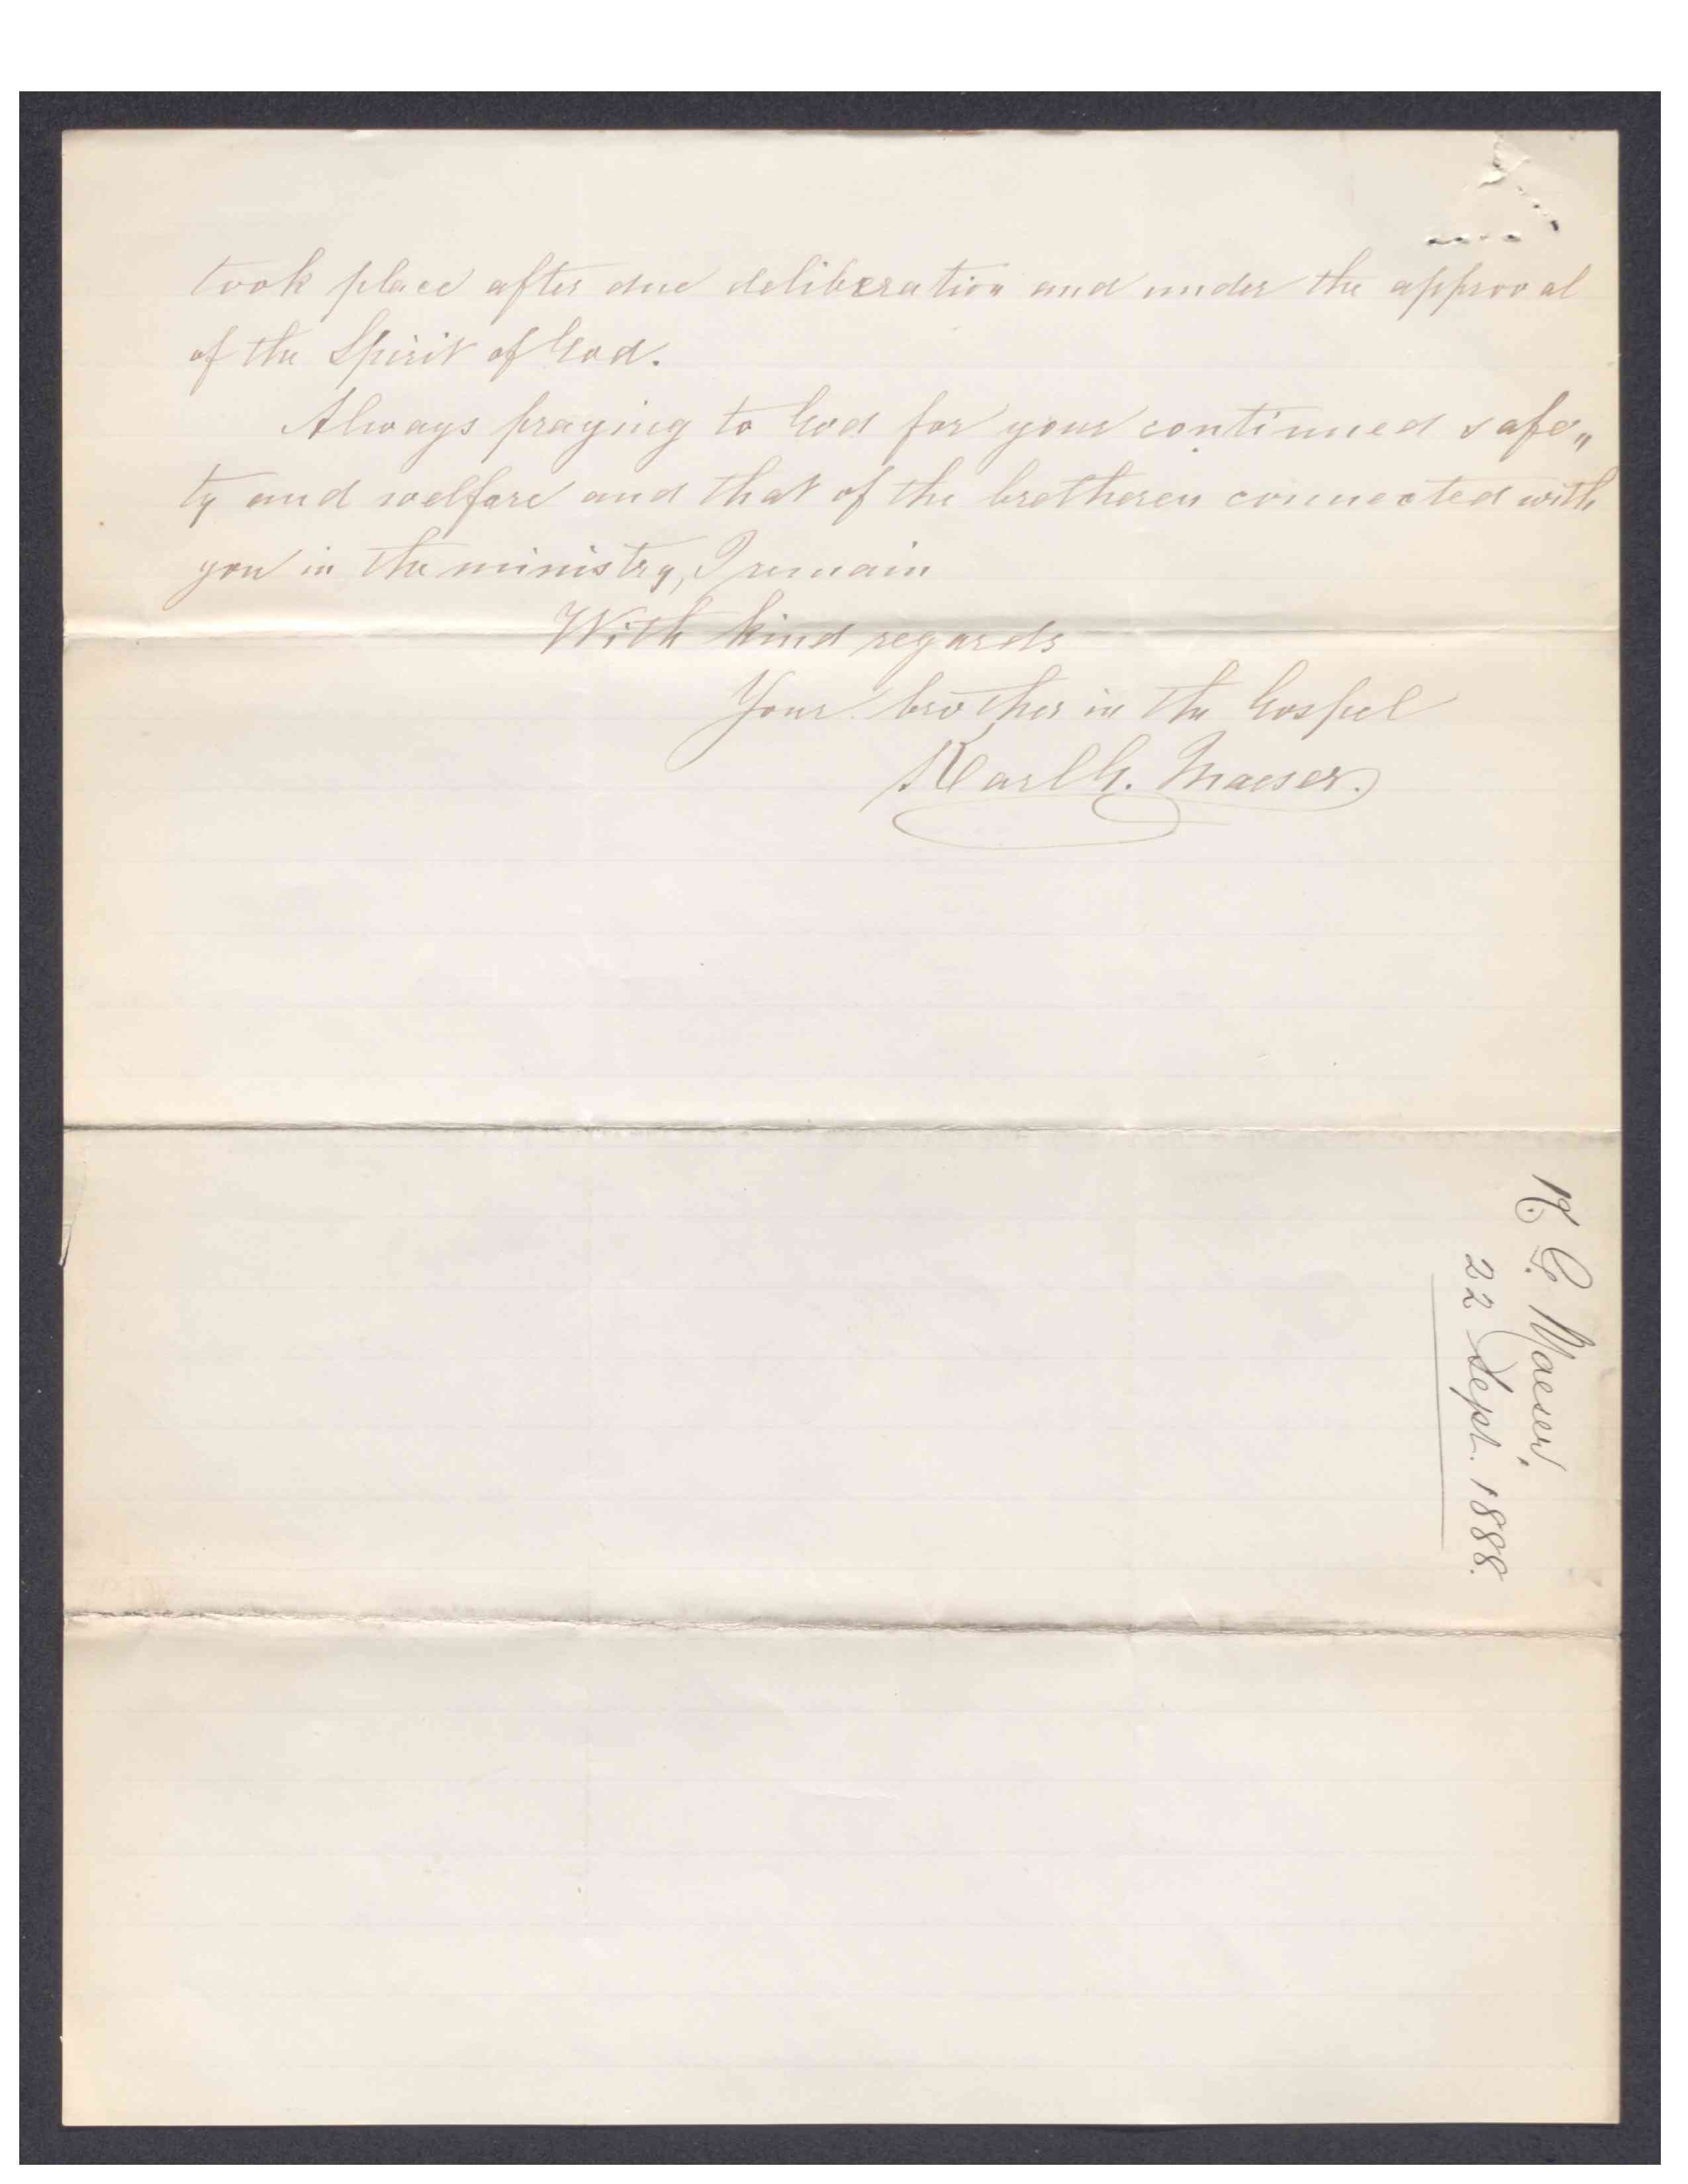 took place after due deliberation and under the approval
of the Spirit of God.
Always praying to God for your continued safe„
ty and welfare and that of the bretheren connected with
you in the ministry, I remain
With kind regards
Your brother in the Gospel
Karl G. Maeser.
K. G. Maeser,
22 Sept. 1888.